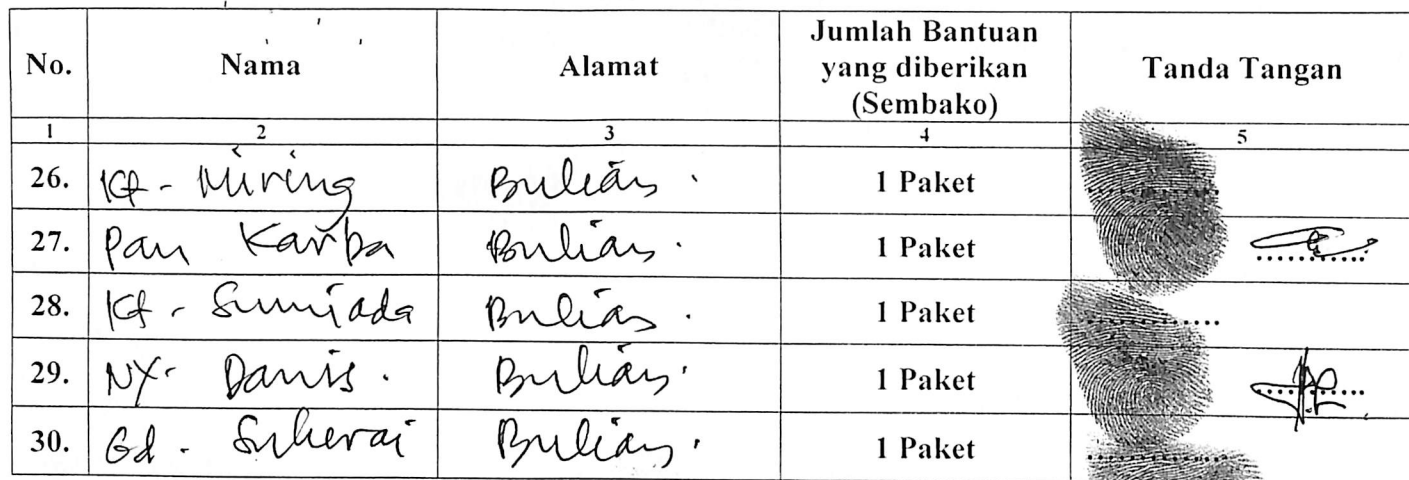 No. Nama Alamat Jumlah Bantuan yang diberikan (Sembako) Tanda Tangan
1 2 3 4 5
26. Kt - Miring Bulian . 1 Paket
27. Pan Karba Bulian . 1 Paket
28. Kt - Sumiada Bulian . 1 Paket
29. NY - Danis . Bulian . 1 Paket
30. Gd - Suherai Bulian . 1 Paket